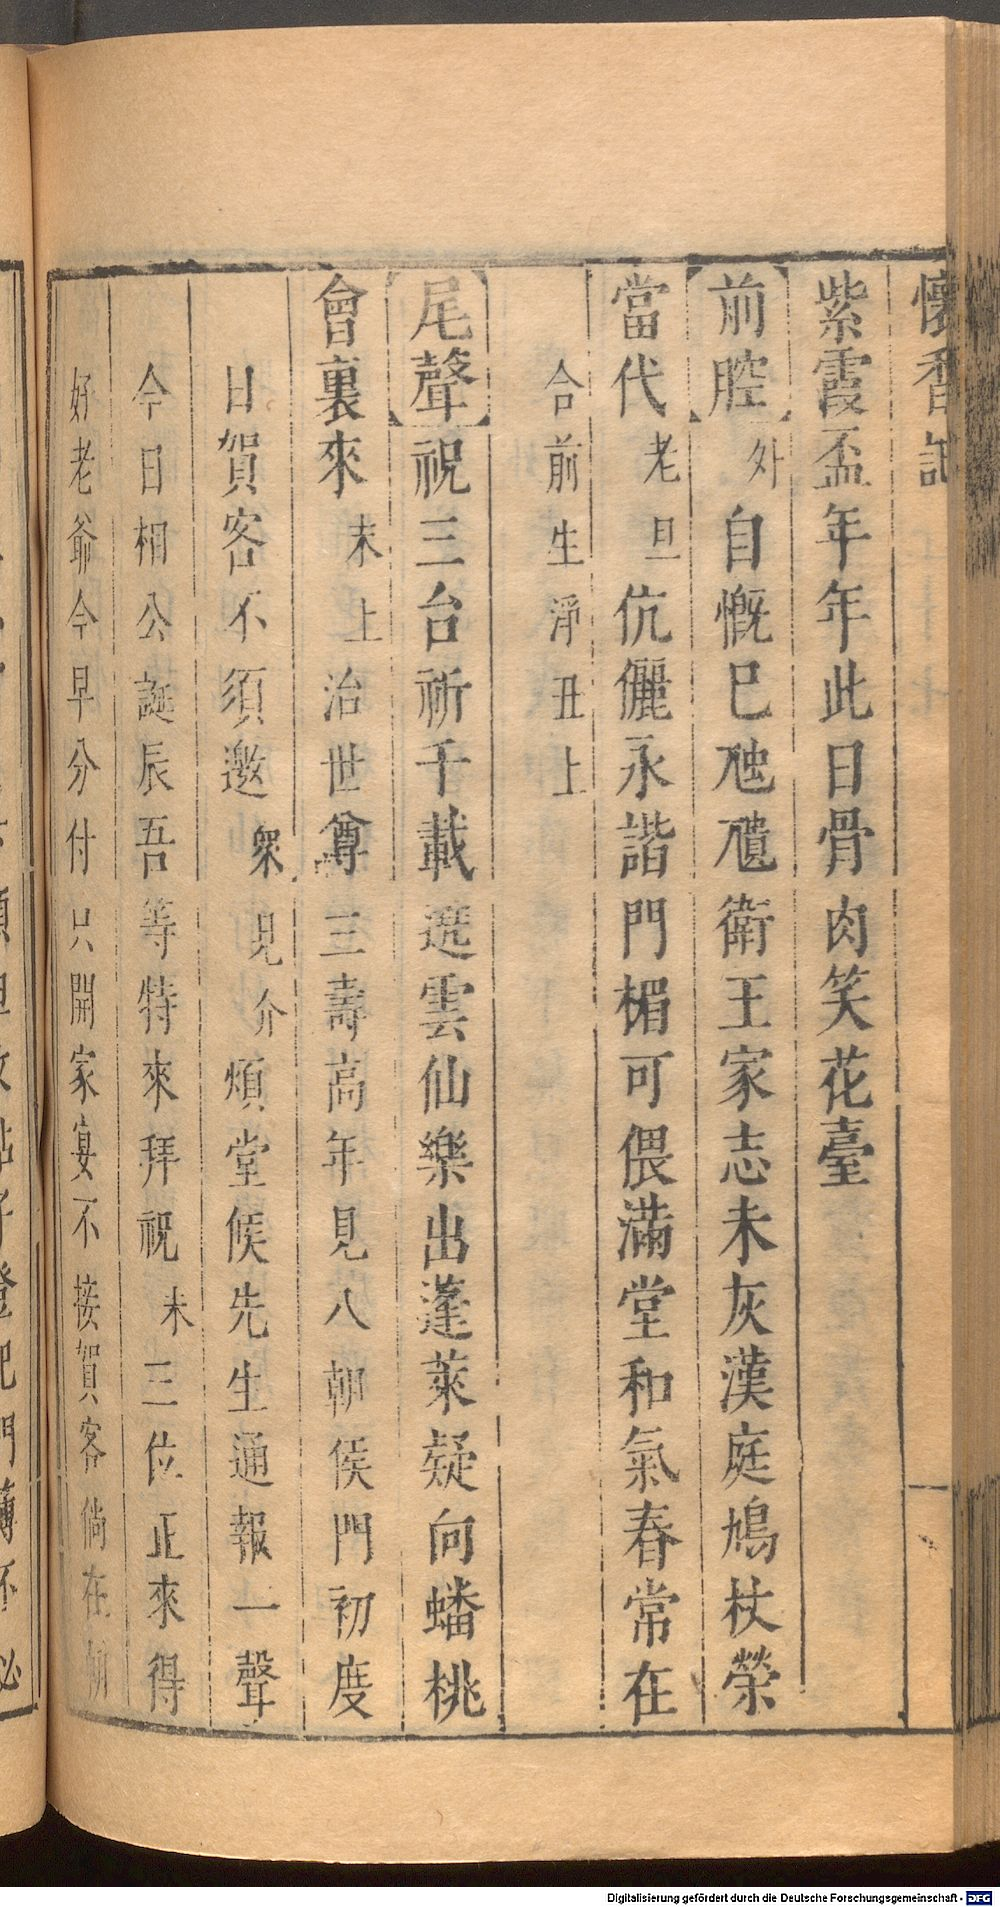 懷香記
紫霞盃年年此日骨肉笑花臺
前腔 外 自慨已虺尵衛王家志未灰漢庭鳩杖榮
當代 老旦 伉儷永諧門楣可偎滿堂和氣春常在
合前生淨丑上
尾聲 祝三台祈千載遶雲仙樂出蓬萊疑向蟠桃
會裏來 末上 治世尊三壽高年見八朝侯門初度
日賀客不須邀 衆見介 煩堂候先生通報一聲
今日相公誕辰吾等特來拜祝 末 三位正來得
好老爺今早分付只開家宴不接賀客倘在朝
Digitalisierung gefördert durch die Deutsche Forschungsgemeinschaft - DFG